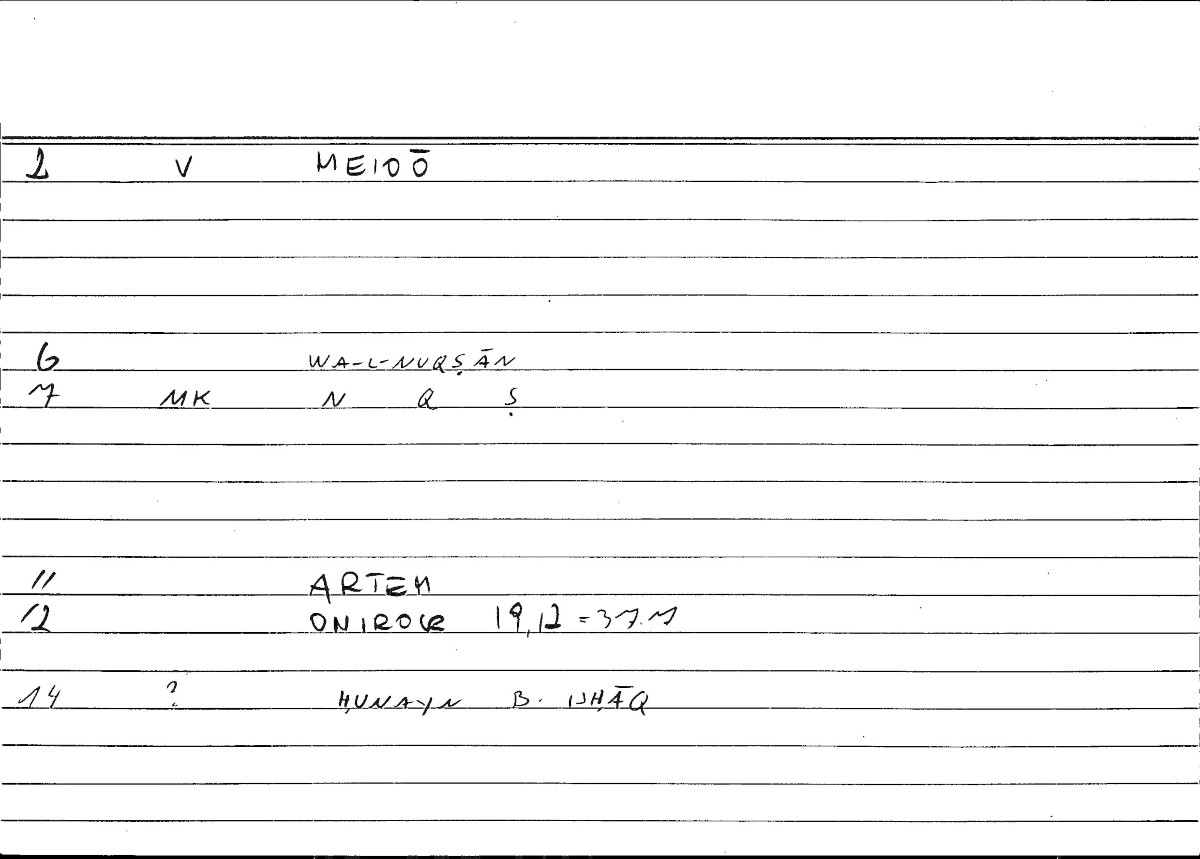 2 V MEIOŌ
6 WA-L-NUQṢĀN
7 MK N Q Ṣ
11 ARTEM
12 ONIROCR 19,12 = 37.7
14 ? ḤUNAYN B. ISḤĀQ